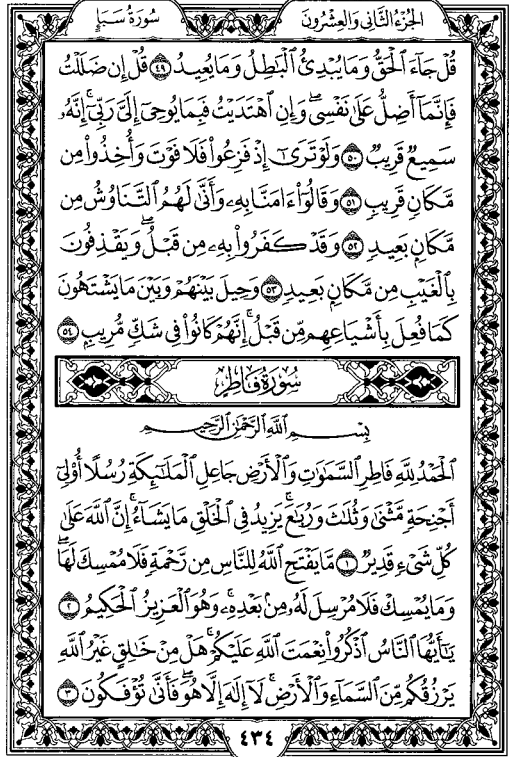 الجزء الثاني والعشرون
سورة سبإ
قُلْ جَآءَ ٱلْحَقُّ وَمَا يُبْدِئُ ٱلْبَٰطِلُ وَمَا يُعِيدُ ٤٩ قُلْ إِن ضَلَلْتُ
فَإِنَّمَآ أَضِلُّ عَلَىٰ نَفْسِى ۖ وَإِنِ ٱهْتَدَيْتُ فَبِمَا يُوحِىٓ إِلَىَّ رَبِّىٓ ۚ إِنَّهُۥ
سَمِيعٌ قَرِيبٌ ٥٠ وَلَوْ تَرَىٰٓ إِذْ فَزِعُوا۟ فَلَا فَوْتَ وَأُخِذُوا۟ مِن
مَّكَانٍ قَرِيبٍ ٥١ وَقَالُوٓا۟ ءَامَنَّا بِهِۦ وَأَنَّىٰ لَهُمُ ٱلتَّنَاوُشُ مِن
مَّكَانٍۭ بَعِيدٍ ٥٢ وَقَدْ كَفَرُوا۟ بِهِۦ مِن قَبْلُ ۖ وَيَقْذِفُونَ
بِٱلْغَيْبِ مِن مَّكَانٍۭ بَعِيدٍ ٥٣ وَحِيلَ بَيْنَهُمْ وَبَيْنَ مَا يَشْتَهُونَ
كَمَا فُعِلَ بِأَشْيَاعِهِم مِّن قَبْلُ ۚ إِنَّهُمْ كَانُوا۟ فِى شَكٍّ مُّرِيبٍۭ ٥٤
سُورَةُ فَاطِرٍ
بِسْمِ ٱللَّهِ ٱلرَّحْمَٰنِ ٱلرَّحِيمِ
ٱلْحَمْدُ لِلَّهِ فَاطِرِ ٱلسَّمَٰوَٰتِ وَٱلْأَرْضِ جَاعِلِ ٱلْمَلَٰٓئِكَةِ رُسُلًا أُو۟لِىٓ
أَجْنِحَةٍ مَّثْنَىٰ وَثُلَٰثَ وَرُبَٰعَ ۚ يَزِيدُ فِى ٱلْخَلْقِ مَا يَشَآءُ ۚ إِنَّ ٱللَّهَ عَلَىٰ
كُلِّ شَىْءٍ قَدِيرٌ ١ مَّا يَفْتَحِ ٱللَّهُ لِلنَّاسِ مِن رَّحْمَةٍ فَلَا مُمْسِكَ لَهَا ۖ
وَمَا يُمْسِكْ فَلَا مُرْسِلَ لَهُۥ مِنۢ بَعْدِهِۦ ۚ وَهُوَ ٱلْعَزِيزُ ٱلْحَكِيمُ ٢
يَٰٓأَيُّهَا ٱلنَّاسُ ٱذْكُرُوا۟ نِعْمَتَ ٱللَّهِ عَلَيْكُمْ ۚ هَلْ مِنْ خَٰلِقٍ غَيْرُ ٱللَّهِ
يَرْزُقُكُم مِّنَ ٱلسَّمَآءِ وَٱلْأَرْضِ ۚ لَآ إِلَٰهَ إِلَّا هُوَ ۖ فَأَنَّىٰ تُؤْفَكُونَ ٣
٤٣٤